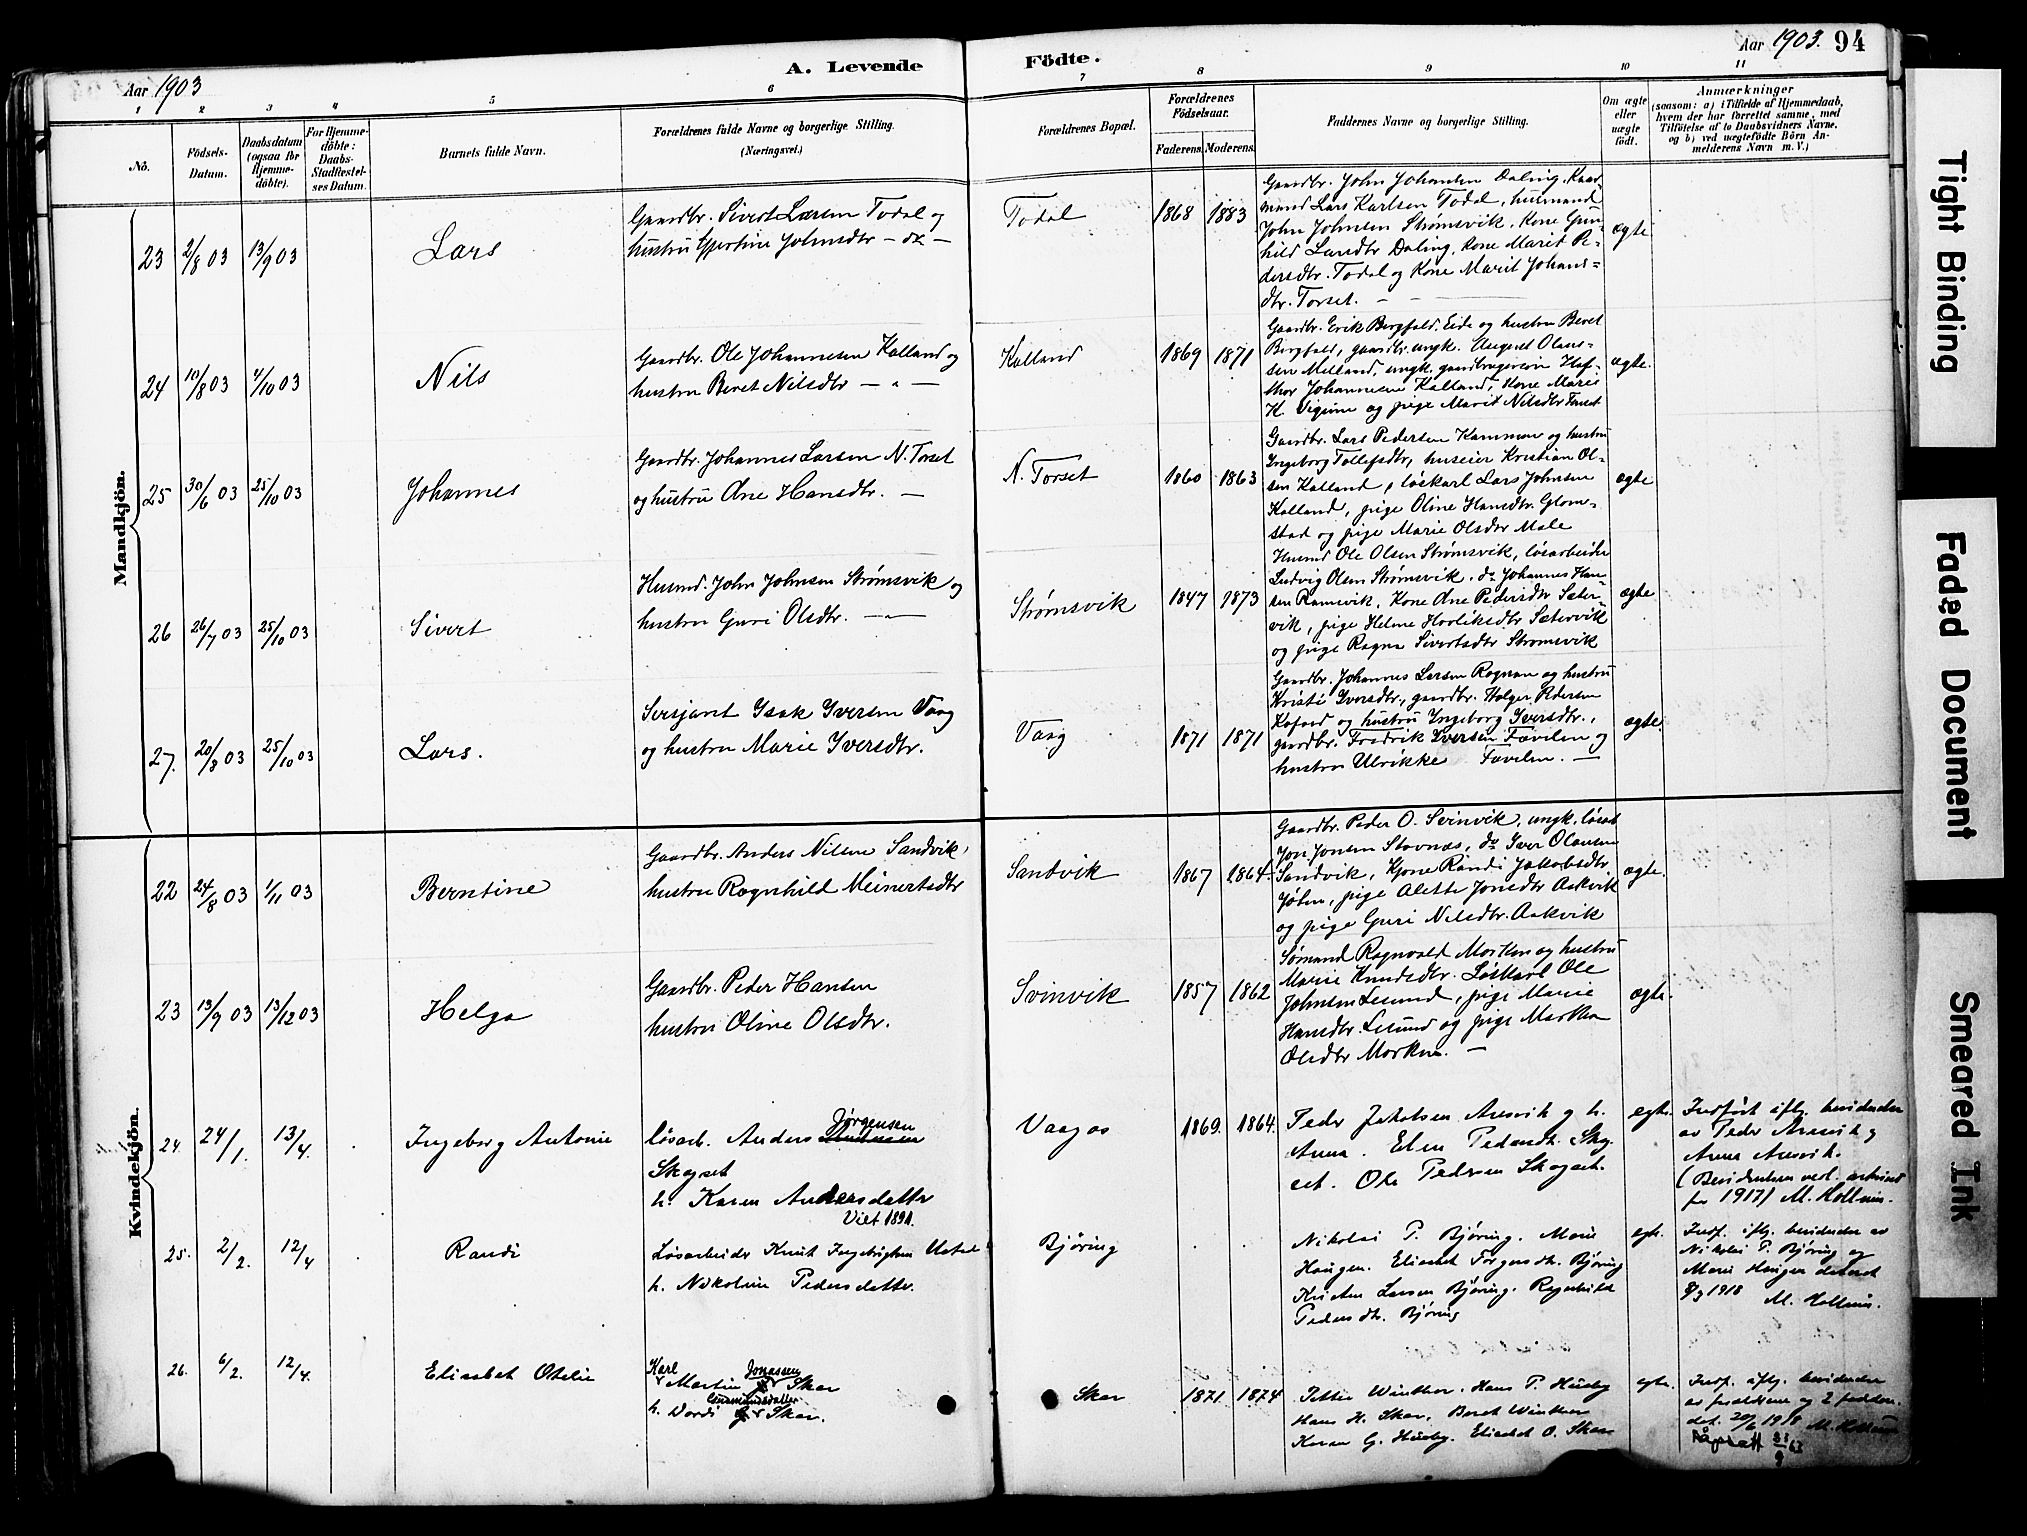 Aar 1903
A. Levende
Födte.
Aar 1903. 94
1 2 3 4 5 6 7 8 9 10 11
No.
Födsels-
Datum.
Daabsdatum
(ogsaa for
Hjemme-
döbte).
For Hjemme-
döbte:
Daabs-
Stadfæstel-
ses Datum.
Barnets fulde Navn.
Forældrenes fulde Navne og borgerlige Stilling.
(Næringsvei.)
Forældrenes Bopæl.
Forældrenes
Födselsaar.
Faderens. Moderens.
Faddernes Navne og borgerlige Stilling.
Om ægte
eller
uægte
födt.
Anmærkninger
(saasom: a) i Tilfælde af Hjemmedaab,
hvem der har forrettet samme, med
Tilföielse af to Daabsvidners Navne,
og b) ved uægtefödte Börn An-
melderens Navn m. V.)
Mandkjön.
23 2/8 03 13/9 03 Lars
Gaardbr. Sivert Larsen Todal og
hustru Johnsdtr — do —
Todal 1868 1883
Gaardbr. John Johansen Daling, Kaar-
mand Lars Karlsen Todal, husmand
John Johnsen Strømsvik, Kone Gun-
hild Larsdtr Daling, Kone Marit Pe-
dersdtr. Todal og Kone Marit Johans-
dtr. Torset. —
ægte
24 10/8 03 4/10 03 Nils
Gaardbr. Ole Johannesen Kalland og
hustru Beret Nilsdtr — " —
Kalland 1869 1871
Gaardbr. Erik Bergfald, Eide og hustru Beret
Bergfald, gaardbr. ungk. August Olaus-
sen Melland, ungk. gaardbruger Haf-
thor Johannesen Kalland, Kone Marit
K. og pige Marit Nilsdtr Torset
ægte.
25 30/6 03 25/10 03 Johannes
Gaardbr. Johannes Larsen N. Torset
og hustru Ane Hansdtr. —
N. Torset 1860 1863
Gaardbr. Lars Pedersen Kammen og hustru
Ingeborg Tollefsdtr, huseier Kristian Ol-
sen Kalland, løskarl Lars Johnsen
Kalland, pige Oline Hansdtr Glom-
stad og pige Marie Olsdtr Male
ægte
26 26/7 03 25/10 03 Sivert
Husmd. John Johnsen Strømsvik og
hustru Guri Olsdtr. — " —
Strømsvik 1847 1873
Husmd Ole Olsen Strømsvik, løsarbeider
Ludvig Olsen Strømsvik, do Johannes Han-
sen Ramsvik, Kone Ane Pedersdtr Sæter-
vik, pige Helene Sætervik
og pige Ragna Sivertsdtr Strømsvik
ægte
27. 20/8 03 25/10 03 Lars.
Sersjant Isak Iversen Vaag
og hustru Marie Iversdtr.
Vaag 1871 1871
Gaardbr. Johannes Larsen Rognan og hustru
Kristi Iversdtr, gaardbr. Holger Pedersen
Kofoed og hustru Ingeborg Iversdtr.,
gaardbr. Fredrik Iversen Favilen og
hustru Ulrikke Favilen. —
ægte.
Kvindekjön.
22 24/8 03 1/11 03 Berntine
Gaardbr. Anders Nilsen Sandvik,
hustru Ragnhild Meinertsdtr
Sandvik 1867 1864
Gaardbr. Peder O. Svinvik, ungk. løsarb
Jon Jonsen Stavnæs, do Iver Olausen
Sandvik, Kjone Randi Jakobsdtr
Jøten, pige Alette Jonsdtr Aakvik
og pige Guri Nilsdtr. Aakvik
ægte.
23 13/9 03 13/12 03 Helga
Gaardbr. Peder Hansen
hustru Oline Olsdtr.
Svinvik 1857 1862
Sømand Ragnvald Morken og hustru
Marie Knudsdtr. Løskarl Ole
Johnsen Lesund, pige Marie
Hansdtr. Lesund og pige Martha
Olsdtr Morken. —
ægte.
24. 24/1. 13/4. Ingeborg Antonie
løsarb. Anders Jørgensen
Skogset
h. Karen Andersdatter
Viet 1891.
Vaagos 1869. 1864.
Peder Jakobsen Aresvik og h.
Anna. Elen Pedersdtr. Skog-
set. Ole Pedersen Skogset.
egte.
Indført iflg. bevidnelse
av Peder Aresvik og
Anna Aresvik.
(Bevidnelsen vedl. arkivet
for 1917) M. Hollum.
25. 2/2. 12/4 Randi
Løsarbeider Knut Ingebrigtsen
h. Nikoline Pedersdatter.
Bjøring
Nikolai P. Bjøring. Marie
Haugen. Elisabet Jørgensdtr. Bjøring
Kristen Larsen Bjøring. Ragnhild
Pedersdtr. Bjøring
egte.
Indf. iflg. bevidnelse av
Nikolai P. Bjøring og
Marie Haugen dateret
8/3 1918 M. Hollum.
26. 6/2. 12/4. Elisabet Otelie
Karl Martin Jonassen Skar
h. Dordi Gudmundsdatter Skar.
Skar 1871. 1874
Petter Winther. Hans P. Huseby
Hans H. Skar. Beret Winther
Karen G. Huseby. Elisabet O. Skar
egte.
Indf. iflg. bevidnelse
av forældrene og 2 faddere
dat. 20/6 1918 M. Hollum
Tight Binding
Faded Document
Smeared Ink